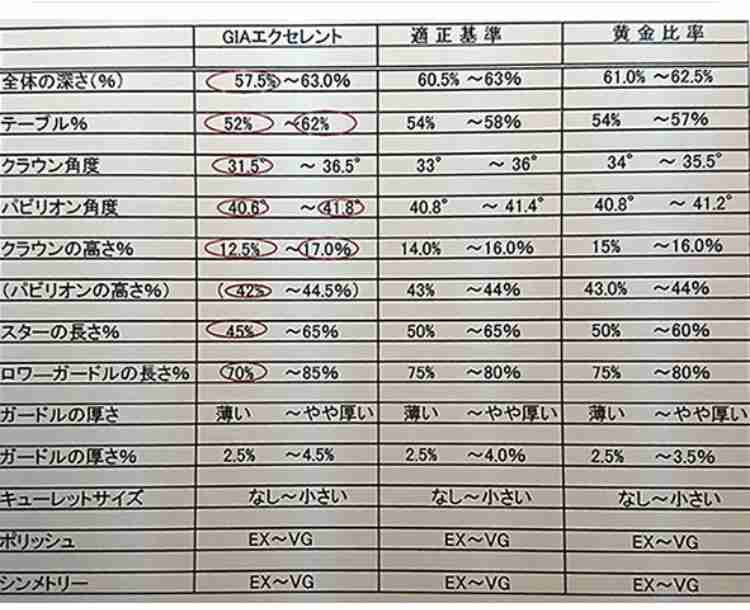 GIAエクセレント 適正基準 黄金比率
全体の深さ(%) 57.5%～63.0% 60.5%～63% 61.0%～62.5%
テーブル% 52%～62% 54%～58% 54%～57%
クラウン角度 31.5°～36.5° 33°～36° 34°～35.5°
パビリオン角度 40.6°～41.8° 40.8°～41.4° 40.8°～41.2°
クラウンの高さ% 12.5%～17.0% 14.0%～16.0% 15%～16.0%
(パビリオンの高さ%) (42%～44.5%) 43%～44% 43.0%～44%
スターの長さ% 45%～65% 50%～65% 50%～60%
ロワーガードルの長さ% 70%～85% 75%～80% 75%～80%
ガードルの厚さ 薄い～やや厚い 薄い～やや厚い 薄い～やや厚い
ガードルの厚さ% 2.5%～4.5% 2.5%～4.0% 2.5%～3.5%
キューレットサイズ なし～小さい なし～小さい なし～小さい
ポリッシュ EX～VG EX～VG EX～VG
シンメトリー EX～VG EX～VG EX～VG